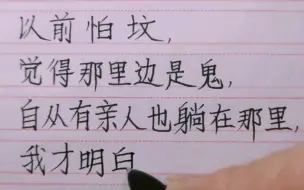 以前怕坟，
觉得那里边是鬼，
自从有亲人也躺在那里，
我才明白